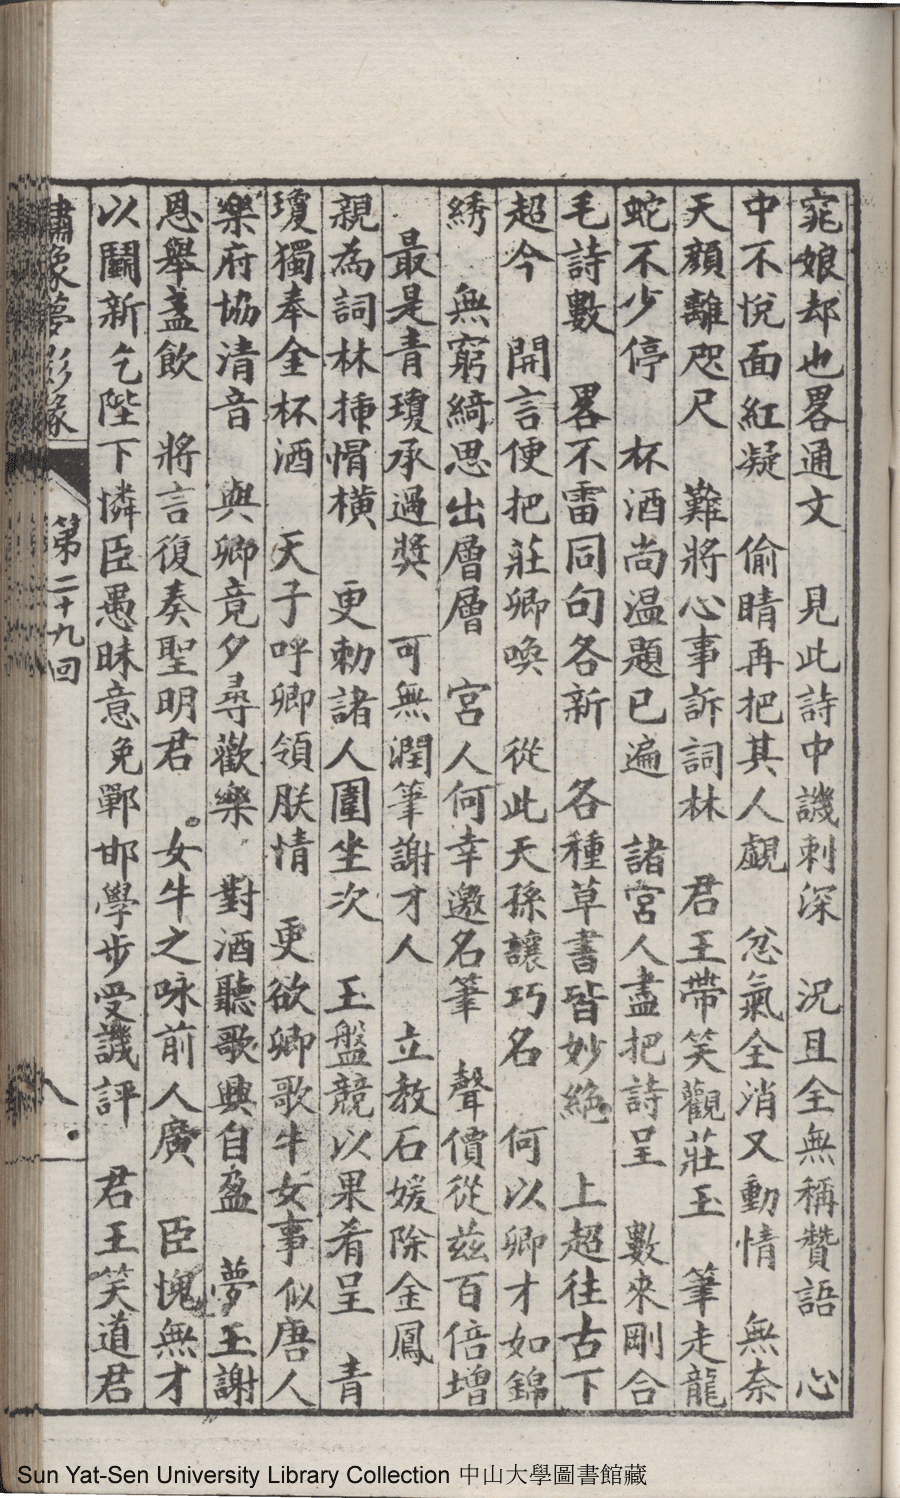 窕娘却也畧通文　見此詩中譏刺深　況且全無稱贊語　心
中不悅面紅凝　偷睛再把其人觑　忿氣全消又動情　無奈
天顏離咫尺　難將心事訴詞林　君王帶笑觀莊玉　筆走龍
蛇不少停　杯酒尚温題已遍　諸宮人盡把詩呈　數來剛合
毛詩數　畧不雷同句各新　各種草書皆妙絶　上超往古下
超今　開言便把莊卿喚　從此天孫讓巧名　何以卿才如錦
綉　無窮綺思出層層　宮人何幸邀名筆　聲價從兹百倍增
最是青瓊承過獎　可無潤筆謝才人　立教石媛除金鳳
親為詞林挿帽橫　更勅諸人圍坐次　玉盤競以果肴呈　青
瓊獨奉金杯酒　天子呼卿領朕情　更欲卿歌牛女事似唐人
樂府協清音　與卿竟夕尋歡樂　對酒聽歌興自盈　夢玉謝
恩舉盞飲　將言復奏聖明君　女牛之咏前人廣　臣愧無才
以鬭新乞陛下憐臣愚昧意免鄲邯學步受譏評　君王笑道君
繡像夢影緣
第二十九回
八
Sun Yat-Sen University Library Collection 中山大學圖書館藏